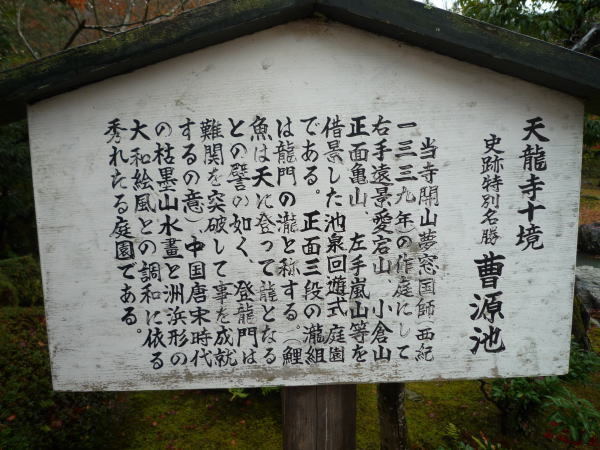 天龍寺十境
史跡特別名勝 曹源池
当寺開山夢窓国師(西紀
一三三九年)の作庭にして
右手遠景愛宕山、小倉山
正面亀山 左手嵐山等を
借景した池泉回遊式庭園
である。正面三段の瀧組
は龍門の瀧と称する。(鯉
魚は天に登って龍となる
との譬の如く、登龍門は
難関を突破して事を成就
するの意)中国唐宋時代
の枯墨山水畫と洲浜形の
大和絵風との調和に依る
秀れたる庭園である。